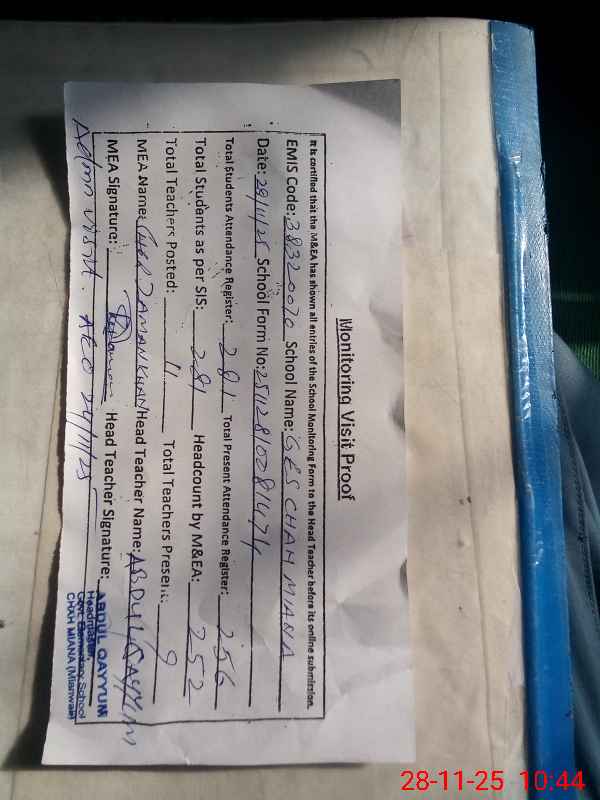 Monitoring Visit Proof
It is certified that the M&EA has shown all entries of the School Monitoring Form to the Head Teacher before its online submission.
EMIS Code: 38320070 School Name: GES CHAH MIANA
Date: 28/11/25 School Form No: 25112810281474
Total Students Attendance Register: 281 Total Present Attendance Register: 256
Total Students as per SIS: 281 Headcount by M&EA: 252
Total Teachers Posted: 11 Total Teachers Present: 9
MEA Name: SHER ZAMAN KHAN Head Teacher Name: ABDUL QAYYUM
MEA Signature: Head Teacher Signature:
Admn visit. AEO 24/11/25
ABDUL QAYYUM
Headmaster
Govt: Elementary School
CHAH MIANA (Mianwali)
28-11-25 10:44